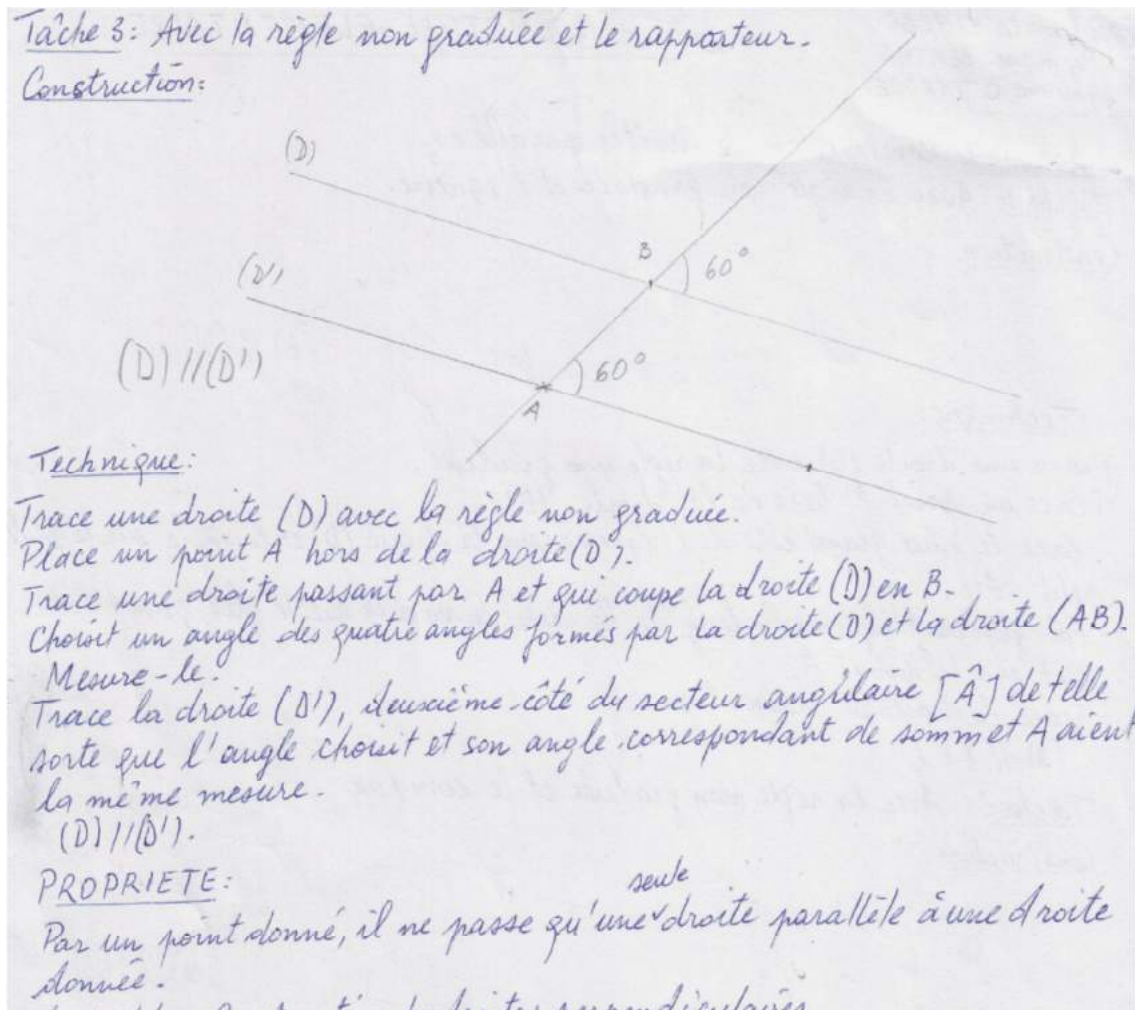 Tâche 3: Avec la règle non graduée et le rapporteur.
Construction:
(D)
B
60°
(D')
(D)//(D')
60°
A
Technique:
Trace une droite (D) avec la règle non graduée.
Place un point A hors de la droite (D).
Trace une droite passant par A et qui coupe la droite (D) en B.
Choisit un angle des quatre angles formés par la droite (D) et la droite (AB).
Mesure-le.
Trace la droite (D'), deuxième côté du secteur angulaire [Â] de telle
sorte que l'angle choisit et son angle correspondant de sommet A aient
la même mesure.
(D)//(D').
PROPRIETE:
Par un point donné, il ne passe qu'une seule droite parallèle à une droite
donnée.
droites perpendiculaires